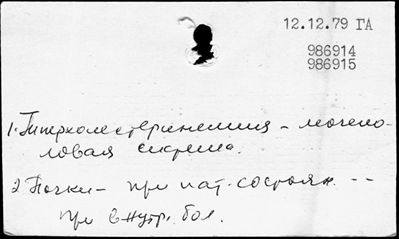 12.12.79 ГА
986914
986915
1. Гиперхолестеринемия - мочепо-
ловая система.
2 Почки - при пат. состоян. --
при внутр. бол.